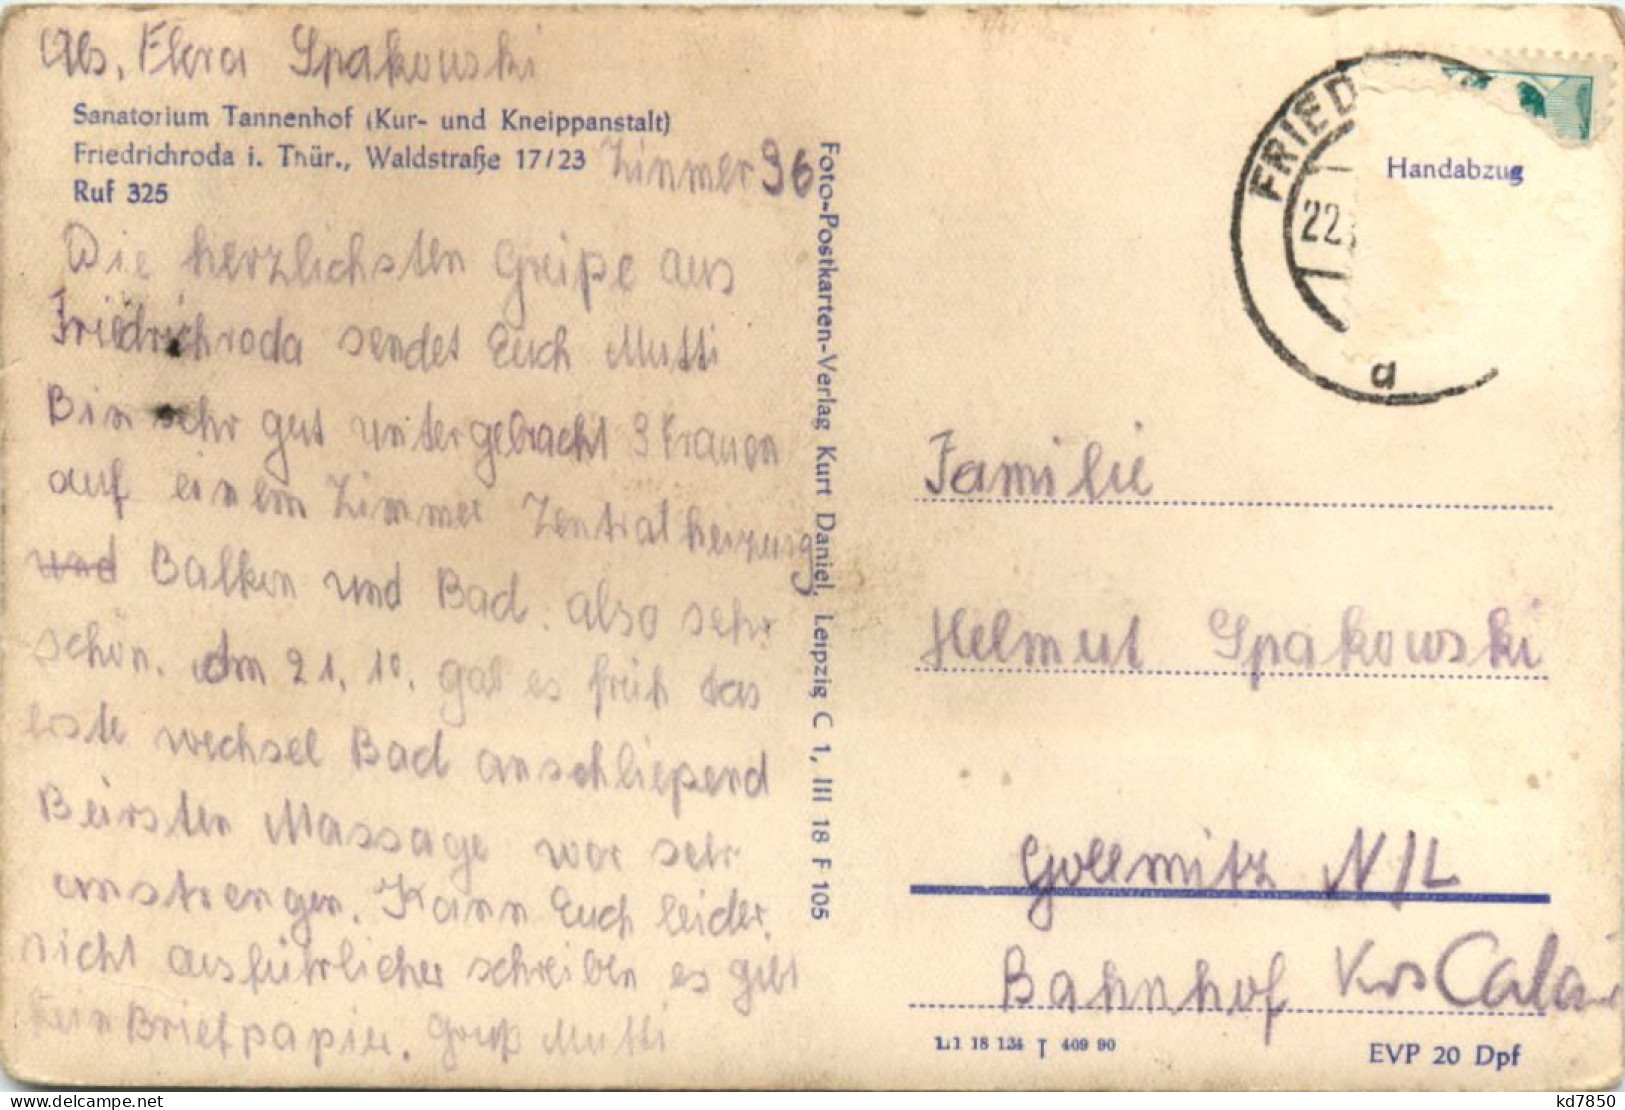 Abs. Flora Spakowski
Sanatorium Tannenhof (Kur- und Kneippanstalt)
Friedrichroda i. Thür., Waldstraße 17/23 Zimmer 36
Ruf 325
Die herzlichsten Greiße aus
Friedrichroda sendet Euch Mutti
Bin sehr gut untergebracht 3 Frauen
auf einem Zimmer Zentralheizung
und Balkon und Bad. also sehr
schön. Am 21. 10. gab es früh das
erste wechsel Bad anschließend
Beirsten Massage war sehr
anstrengen. Kann Euch leider
nicht ausführlicher schreiben es gibt
kein Briefpapier. Gruß Mutti
Foto-Postkarten-Verlag Kurt Daniel, Leipzig C 1, III 18 F 105
FRIED
22.
a
Handabzug
Familie
Helmut Spakowski
Gollmitz N/L
Bahnhof Krs Calau
L11 18 134 T 409 90
EVP 20 Dpf
https://www.delcampe.net
kd7850